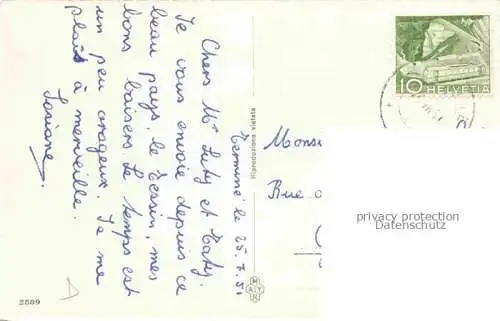 Terminé le 25.7.51
Chers Mr Luty et Caty.
Je vous envoie depuis ce
beau pays, le Tessin, mes
bons baisers. Le temps est
un peu orageux. Je me
plaîs à merveille.
Josiane.
Riproduzione vietata
MAYR
2889
10 HELVETIA
Monsi
Rue
privacy protection
Datenschutz